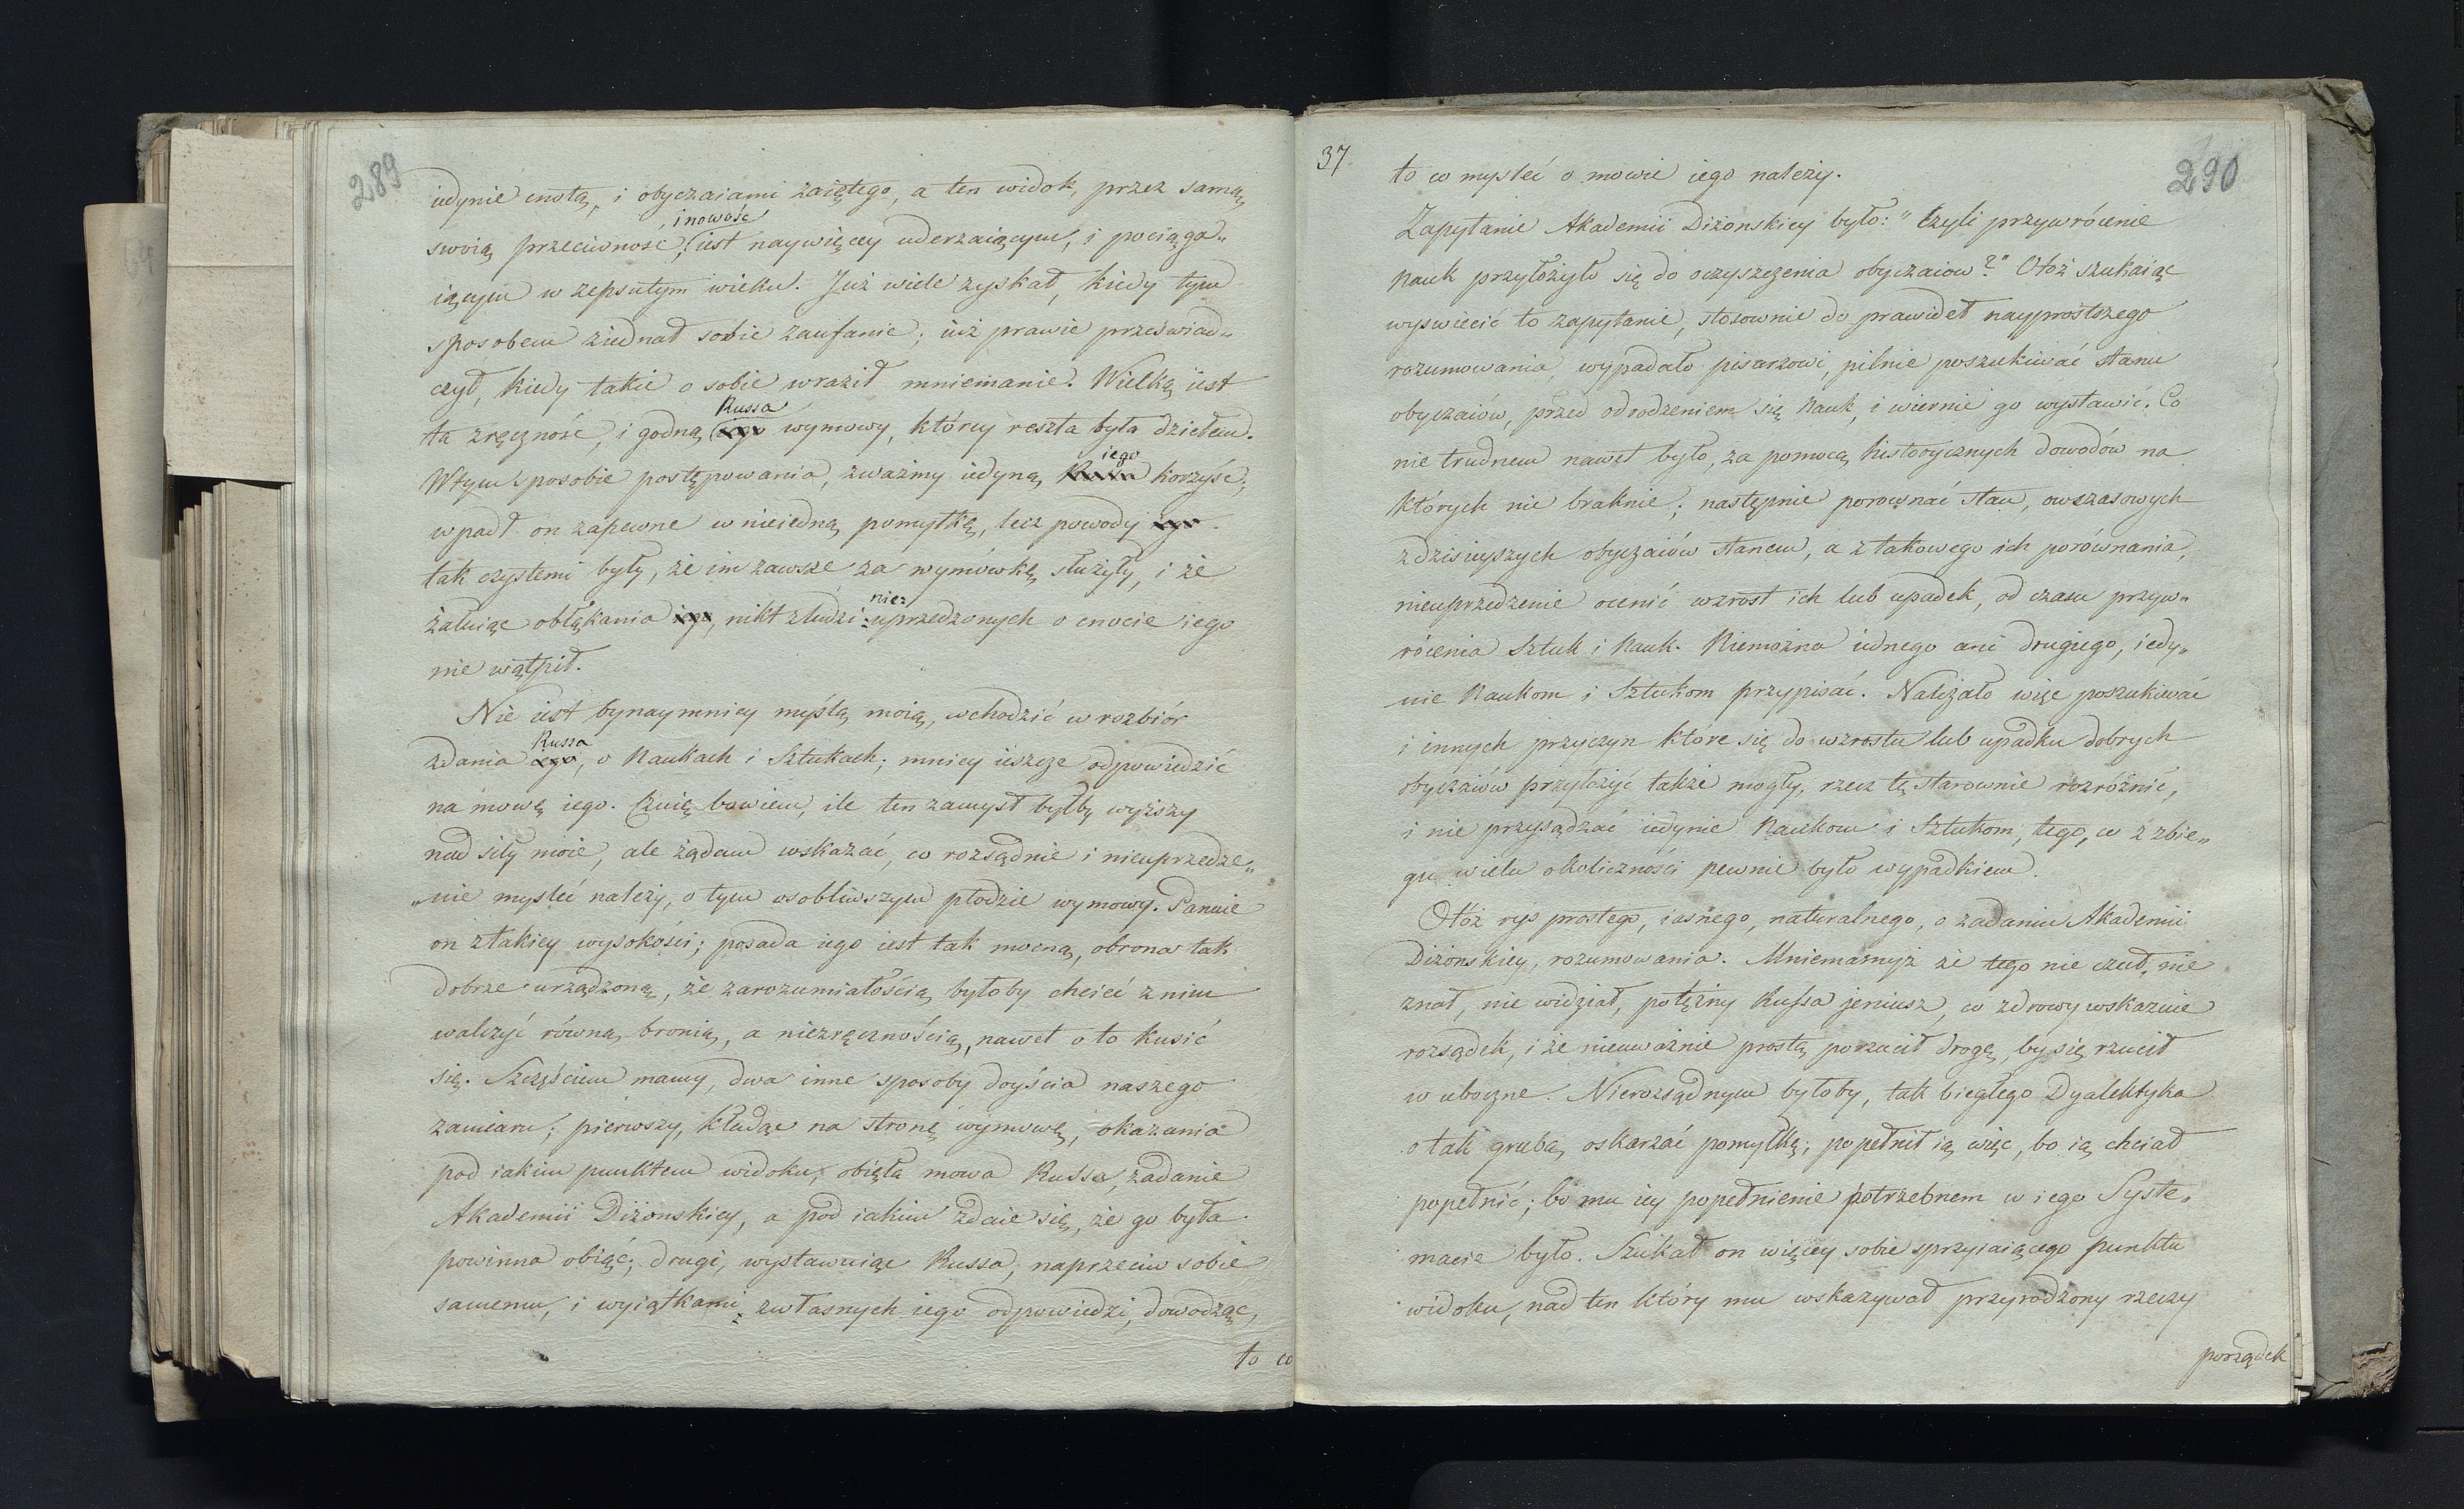 289
iedynie cnotą, i obyczaiami zaiętego, a ten widok, przez samą
, i nowość
swoią przeciwność, iest naywięcey uderzaiącym, i pociąga„
iącym w zepsutym wieku. Już wiele zyskał, kiedy tym
sposobem ziednał sobie zaufanie; iuż prawie przeświad„
czył, kiedy takie o sobie wraził mniemanie. Wielką iest
Russa
ta zręczność, i godną iego wymowy, którey reszta była dziełem.
iego
W tym sposobie postępowania, zważmy iedyną Russa korzyść;
wpadł on zapewne w nieiedną pomyłkę, lecz powody iego
tak czystemi były, że im zawsze za wymówkę służyły, i że
nie:
żałuiąc obłąkania iego, nikt z ludzi uprzedzonych o cnocie iego
nie wątpił.
Nie iest bynaymniey myślą moią, wchodzić w rozbiór
Russa
zdania iego, o Naukach i Sztukach; mniey ieszcze odpowiedzić
na mowę iego. Czuię bowiem, ile ten zamysł byłby wyższy
nad siły moie, ale żądam wskazać, co rozsądnie i nieuprzedze„
„nie mysleć należy, o tym osobliwszym płodzie wymowy. Panuie
on z takiey wysokości; posada iego iest tak mocną, obrona tak
dobrze urządzoną, że zarozumiałością byłoby chcieć z nim
walczyć równą bronią, a niezręcznością, nawet o to kusić
się. Szczęściem mamy, dwa inne sposoby doyścia naszego
zamiaru; pierwszy, kładąc na stronę wymowę, okazania
pod iakim punktem widoku, obięła mowa Russa, zadanie
Akademii Diżonskiey, a pod iakim zdaie się, że go była
powinna obiąć; drugi, wystawuiąc Russa, naprzeciw sobie
samemu, i wyiątkami z własnych iego odpowiedzi, dowodząc,
to co
37.
290
to co mysleć o mowie iego należy.
Zapytanie Akademii Diżonskiey było: "Czyli przywrócenie
Nauk przyłożyło się do oczyszczenia obyczaiow?" Otoż szukaiąc
wyswiecić to zapytanie, stosownie do prawideł nayprostszego
rozumowania, wypadało pisarzowi, pilnie poszukiwać stanu
obyczaiów, przed odrodzeniem się Nauk, i wiernie go wystawić. Co
nie trudnem nawet było, za pomocą historycznych dowodów na
których nie braknie; następnie porownać stan, owczasowych
z dzisieyszych obyczaiów stanem, a z takowego ich porównania,
nieuprzedzenie ocenić wzrost ich lub upadek, od czasu przyw„
rócenia Sztuk i Nauk. Niemożna iednego ani drugiego, iedy„
nie Naukom i Sztukom przypisać. Należało więc poszukiwać
i innych przyczyn które się do wzrostu lub upadku dobrych
obyczaiów przyłożyć także mogły, rzecz tę starownie rozróżnić,
i nie przysądzać iedynie Naukom i Sztukom, tego, co z zbie„
gu wielu okoliczności pewnie było wypadkiem.
Otóż rys prostego, iasnego, naturalnego, o zadaniu Akademii
Diżonskiey, rozumowania. Mniemamyż że tego nie czuł, nie
znał, nie widział, potężny Russa jeniusz, co zdrowy wskazuie
rozsądek, i że nieuważnie prostą porzucił drogę, by się rzucił
w uboczne. Nierozsądnym byłoby, tak biegłego Dyalektyka
o tak grubą oskarzać pomyłkę; popełnił ią więc, bo ią chciał
popełnić; bo mu iey popełnienie potrzebnem w iego Syste„
macie było. Szukał on więcey sobie sprzyiaiącego punktu
widoku, nad ten który mu wskazywał przyrodzony rzeczy
porządek